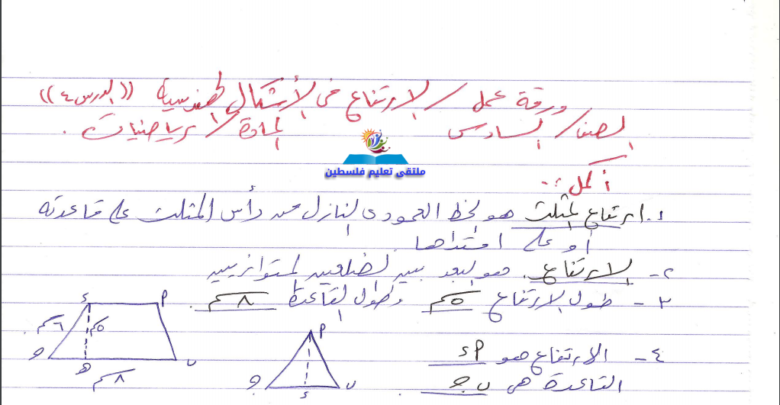 ورقة عمل / الارتفاع في الأشكال الهندسية ((الدرس ٤))
الصف / السادس المادة / رياضيات .
ملتقى تعليم فلسطين
أكمل :-
١- ارتفاع المثلث هو الخط العمودي النازل من رأس المثلث على قاعدته
أو على امتدادها .
٢- الارتفاع هو البعد بين الضلعين المتوازيين
٣- طول الارتفاع ٥سم وطول القاعدة ٨سم .
٤- الارتفاع هو أء
القاعدة هي ب جـ
ء أ
٦سم ٥سم
جـ هـ ب
٨سم
أ
جـ ء ب